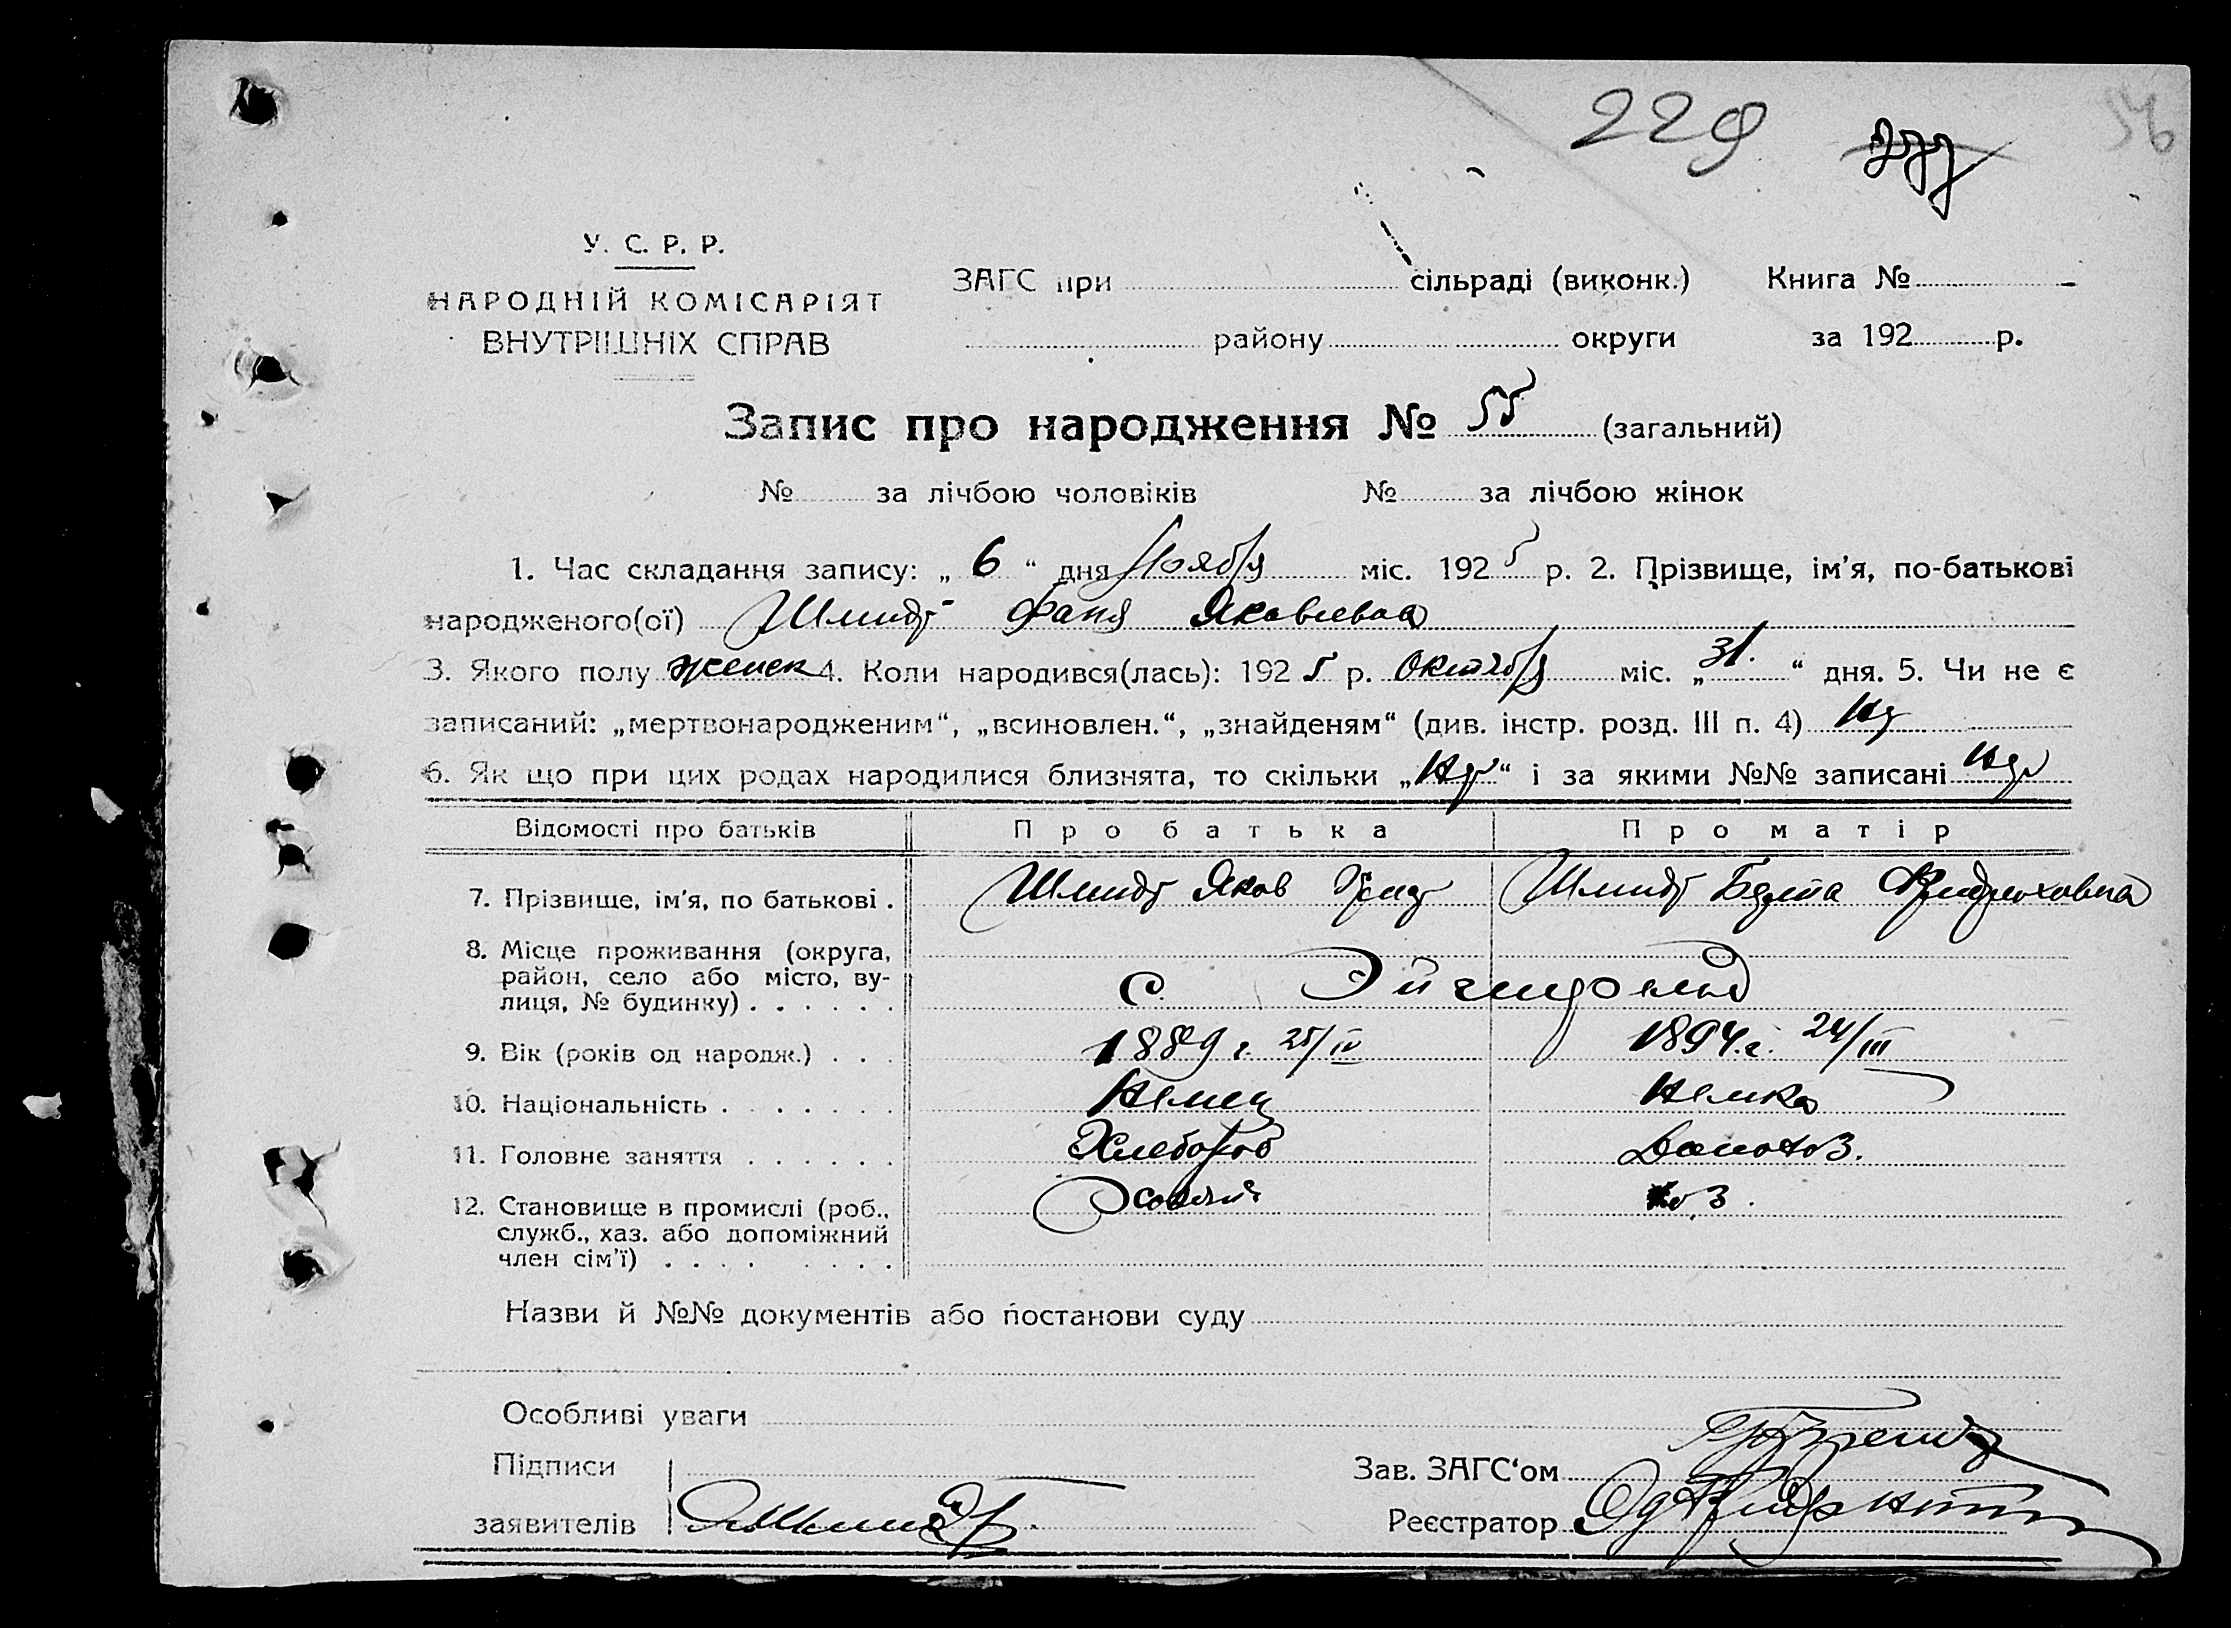 229
56
У. С. Р. Р.
НАРОДНІЙ КОМІСАРІЯТ
ВНУТРІШНІХ СПРАВ
ЗАГС при сільраді (виконк.) Книга №
району округи за 192 р.
Запис про народження № 55 (загальний)
№ за лічбою чоловіків № за лічбою жінок
1. Час складання запису: „ 6 “ дня Ноября міс. 192 5 р. 2. Прізвище, ім’я, по-батькові
народженого(ої) Шмидт Фаня Яковлевна
3. Якого полу женск 4. Коли народився(лась): 192 5 р. Октября міс. „ 31. “ дня. 5. Чи не є
записаний: „мертвонародженим“, „всиновлен.“, „знайденям“ (див. інстр. розд. III п. 4)
6. Як що при цих родах народилися близнята, то скільки „ “ і за якими №№ записані
Відомості про батьків Про батька Про матір
7. Прізвище, ім’я, по батькові . Шмидт Яков Шмидт Берта Фридриховна
8. Місце проживання (округа,
район, село або місто, ву-
лиця, № будинку) . . . . . . С. Эйгенфельд
9. Вік (років од народж.) . . . 1889 г. 25/IV 1894 г. 24/III
10. Національність . . . . . . . Немец Немка
11. Головне заняття . . . . . . Хлебороб Домохоз.
12. Становище в промислі (роб.,
служб., хаз. або допоміжний
член сім’ї) . . . . . . . . Хозяин
Назви й №№ документів або постанови суду
Особливі уваги
Підписи
заявителів Шмидт
Зав. ЗАГС‘ом
Реєстратор